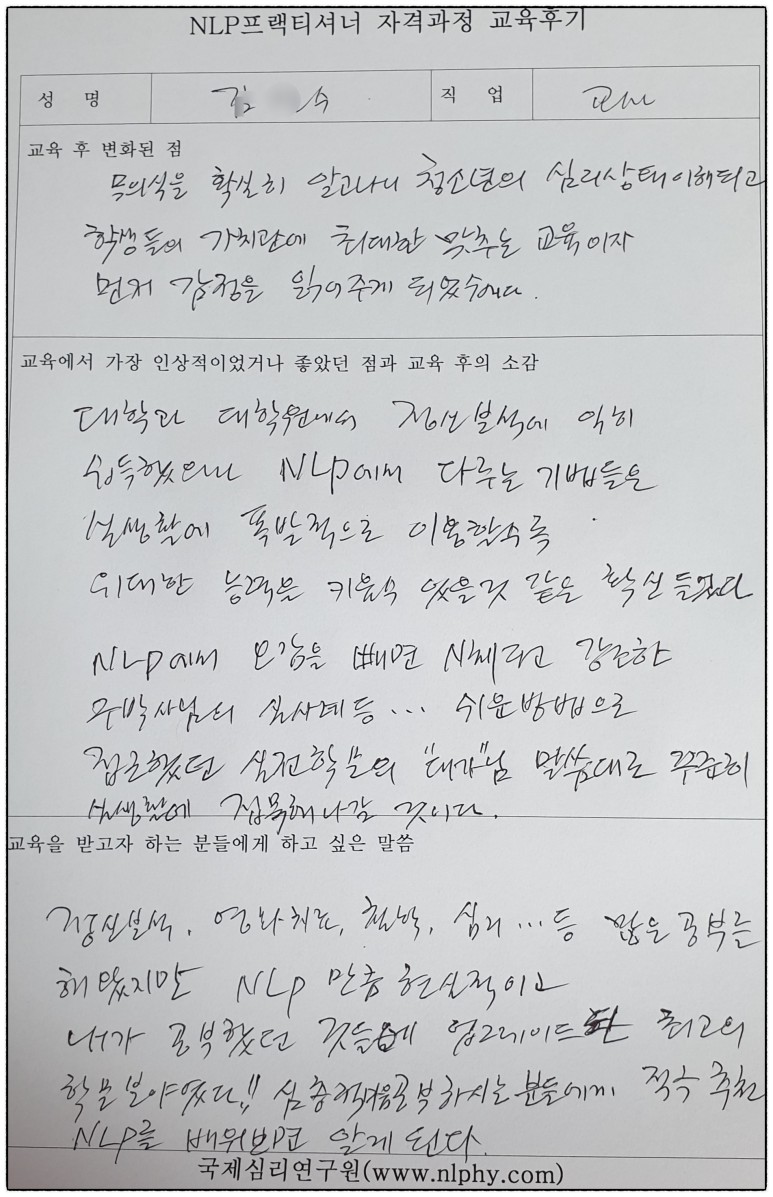 NLP프랙티셔너 자격과정 교육후기
성 명 김 수 직 업 교사
교육 후 변화된 점
무의식을 확실히 알고나니 청소년의 심리상태이해되고
학생들의 가치관에 최대한 맞추는 교육이자
먼저 감정을 읽어주게 되었습니다.
교육에서 가장 인상적이었거나 좋았던 점과 교육 후의 소감
대학과 대학원에서 정신분석에 익히
습득했으나 NLP에서 다루는 기법들은
실생활에 폭발적으로 이용할수록
위대한 능력을 키울수 있을것 같은 확신 들었다
NLP에서 오감을 빼면 시체라고 강조한
박사님의 실사례등... 쉬운방법으로
접근했던 실전학문의 "대가"님 말씀대로 꾸준히
실생활에 접목해나갈 것이다.
교육을 받고자 하는 분들에게 하고 싶은 말씀
정신분석, 영화치료, 철학, 심리...등 많은 공부를
해 왔지만 NLP 만큼 현실적이고
내가 공부했던 것들에 업그레이드한 최고의
학문 분야였다!! 심층적 공부하시는분들에게 적극 추천
NLP를 배워보면 알게 된다.
국제심리연구원(www.nlphy.com)